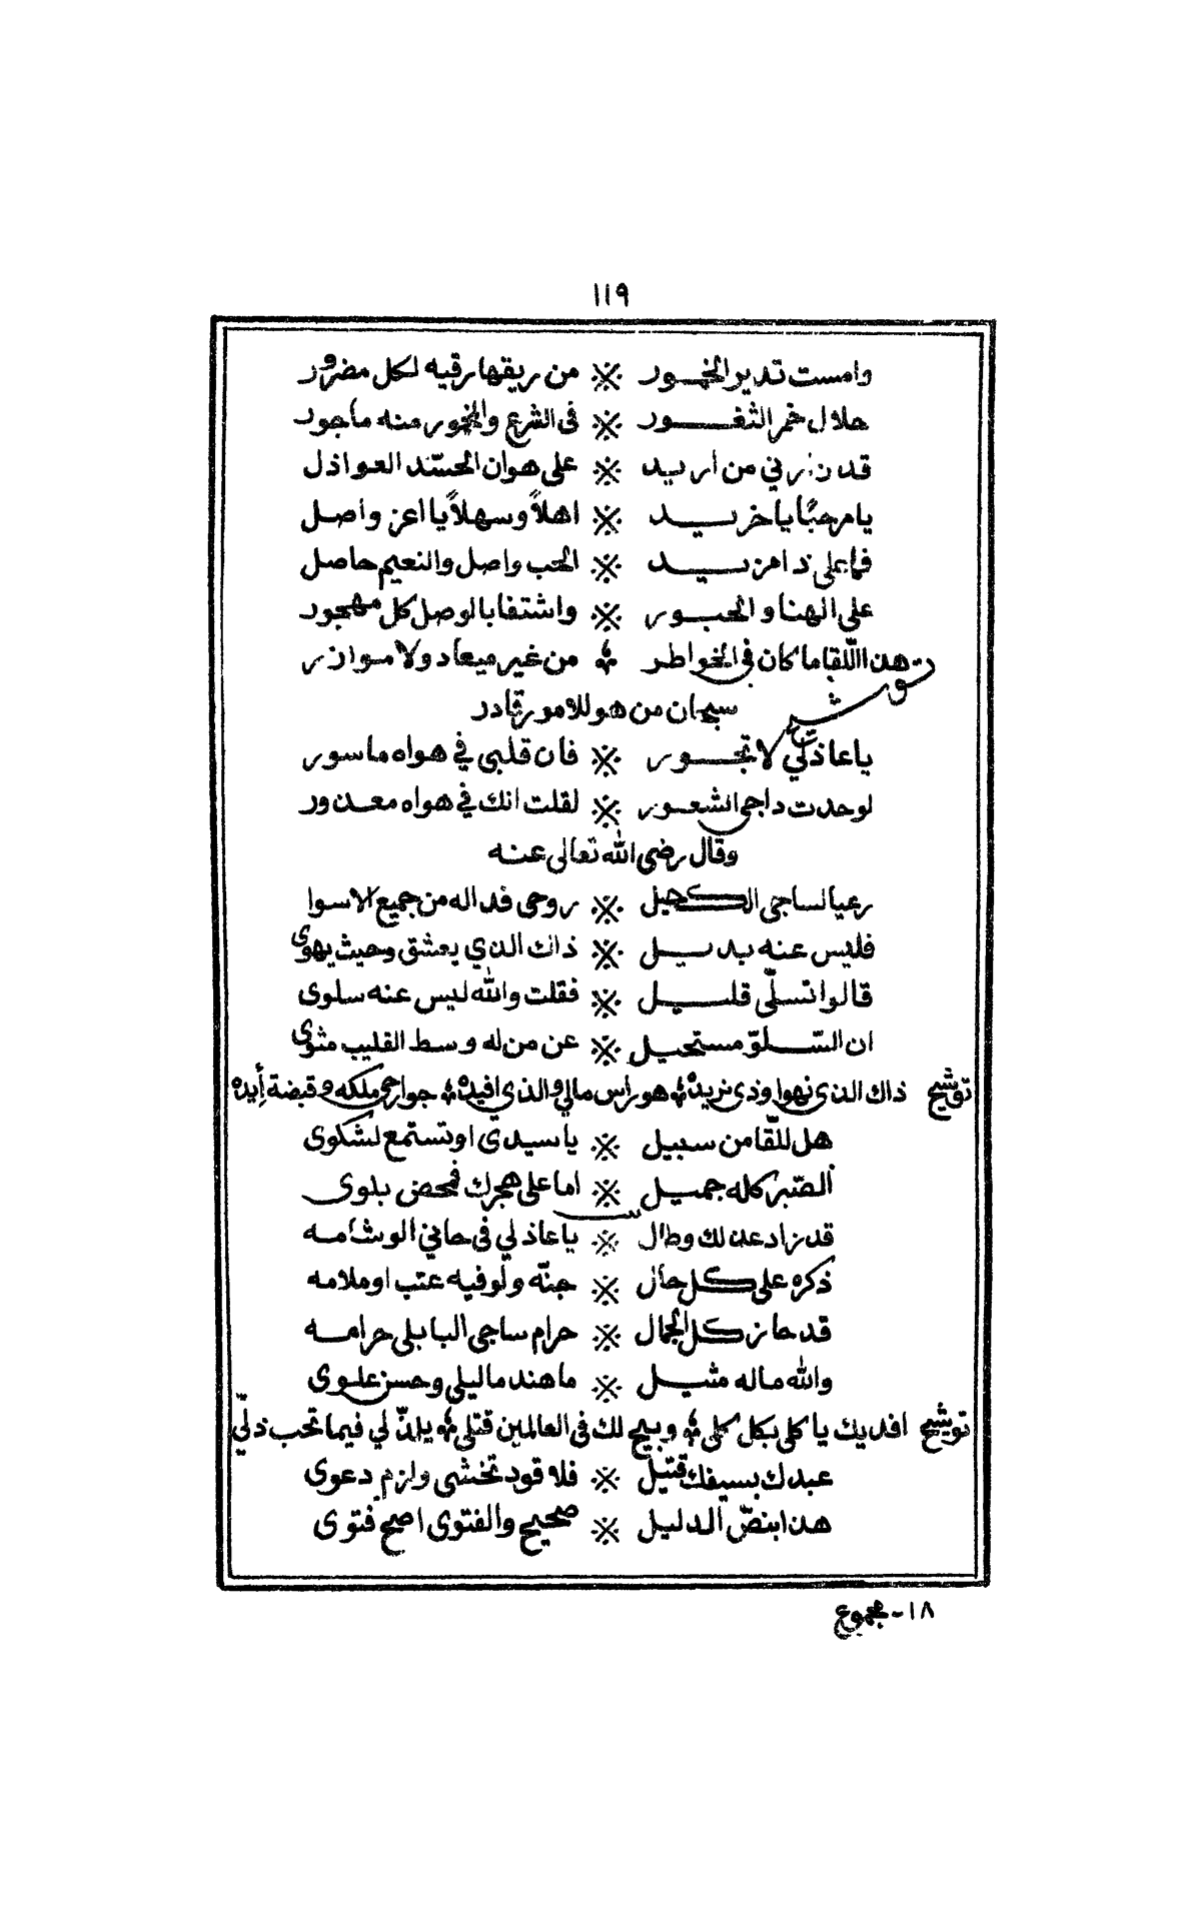 ١١٩
وامست تدير الخمور ※ من ريقها رقيه لكل مضرور
حلال خمر الثغور ※ فى الشرع والمخمور منه ماجور
قد زارني من اريد ※ على هوان الحسّد العواذل
يا مرحبًا يا خريد ※ اهلاً وسهلاً يا اعز واصل
فما على ذا مزيد ※ الحب واصل والنعيم حاصل
على الهنا والحبور ※ واشتفا بالوصل كل مهجور
توشيح هذا اللقا ما كان في الخواطر ؞ من غير ميعاد ولا موازر
سبحان من هو للامور قادر
يا عاذلي لا تجور ※ فان قلبى في هواه ماسور
لو حدت داجى الشعور ※ لقلت انك في هواه معذور
وقال رضى الله تعالى عنه
رعيا لساجى الكحيل ※ روحى فداله من جميع الاسوا
فليس عنه بديل ※ ذاك الذي يعشق وحيث يهوى
قالوا تسلّى قليل ※ فقلت والله ليس عنه سلوى
ان السّلوّ مستحيل ※ عن من له وسط القليب مثوى
توشيح ذاك الذى نهوا وذى نريده ؞ هو راس مالي والذى افيده ؞ جوارحى ملكه وقبضة أيده
هل للّقا من سبيل ※ يا سيدي او تستمع لشكوى
الصّبر كله جميل ※ اما على هجرك فمحض بلوى
قد زاد عذلك وطال ※ يا عاذلي فى حاني الوشامه
ذكره على كل حال ※ جنّه ولو فيه عتب او ملامه
قد حاز كل الجمال ※ حرام ساجى البابلى حرامه
والله ماله مثيل ※ ما هند ما ليلى وحسن علوى
توشيح افديك يا كلى بكل كلى ؞ ويبيح لك فى العالمين قتلى ؞ يلذّ لي فيما تحب ذلّي
عبدك بسيفك قتيل ※ فلا قود تخشى ولازم دعوى
هذا بنصّ الدليل ※ صحيح والفتوى اصح فتوى
١٨ - مجموع